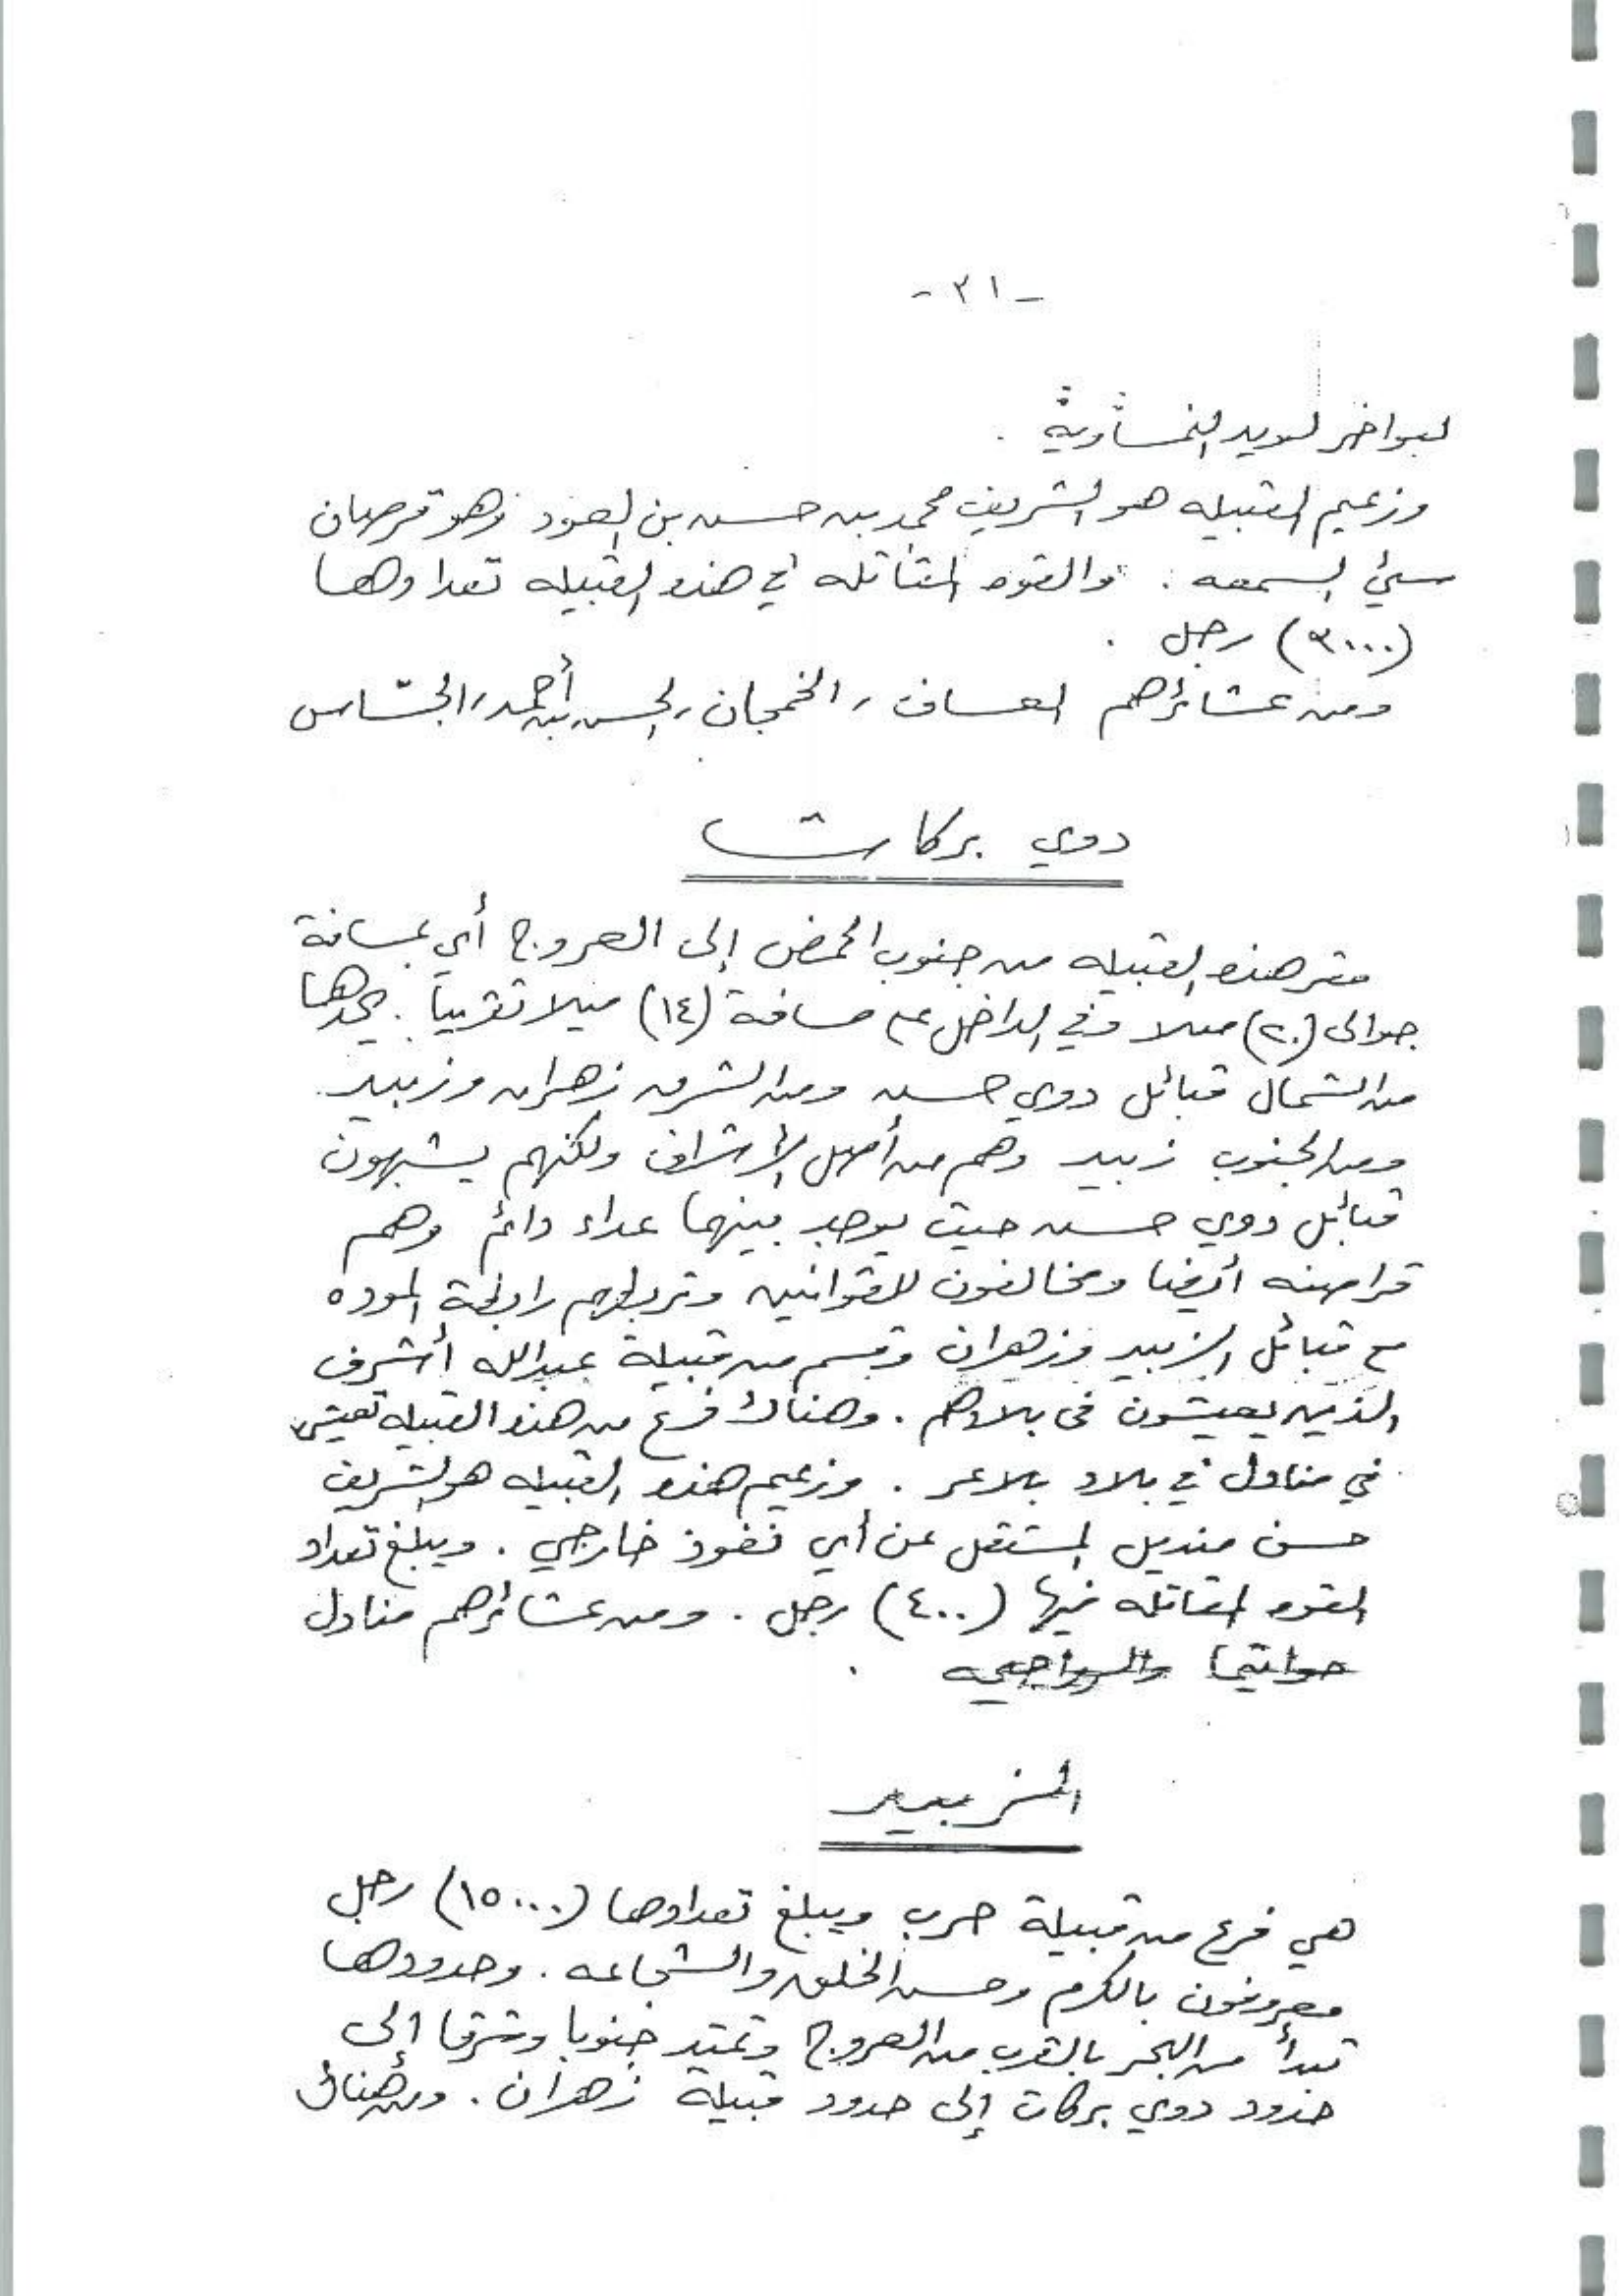 - ٣١ -
لبواخر لويد النمساوية .
وزعيم القبيله هو الشريف محمد بن حسن بن العود وهو قرصان
سيئ السمعه . والقوه المقاتله في هذه القبيله تعدادها
(٣٠٠٠) رجل .
ومن عشائرهم العساف ، الخمجان ، الحسن بن أحمد ، الجسّاس
دوي بركات
مقر هذه القبيله من جنوب الحمض إلى العروج أي بمسافة
حوالى (٢٠) ميلا وفي الداخل على مسافة (١٤) ميلا تقريباً . يحدها
من الشمال قبائل دوي حسن ومن الشرق زهران وزبيد .
ومن الجنوب زبيد وهم من أصل الأشراف ولكنهم يشبهون
قبائل دوي حسن حيث يوجد بينهما عداء دائم وهم
قراصنه أيضا ومخالفون للقوانين وتربطهم رابطة الموده
مع قبائل الزبيد وزهران وقسم من قبيلة عبدالله أشرف
الذين يعيشون فى بلادهم . وهناك فرع من هذه القبيله تعيش
في مناول في بلاد بلاعر . وزعيم هذه القبيله هو الشريف
حسن منديل المستقل عن أي نفوذ خارجي . ويبلغ تعداد
القوه المقاتله فيها (٤٠٠) رجل . ومن عشائرهم مناول
الزبيد
هي فرع من قبيلة حرب ويبلغ تعدادها (١٥٠٠٠) رجل
معروفون بالكرم وحسن الخلق والشجاعه . وحدودها
تبدأ من البحر بالقرب من العروج وتمتد جنوبا وشرقا إلى
حدود دوي بركات إلى حدود قبيلة زهران . ومن هناك